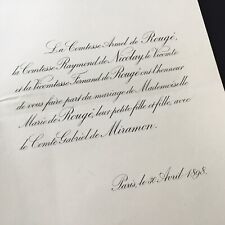 La Comtesse Armel de Rougé,
la Comtesse Raymond de Nicolay, le Vicomte
et la Vicomtesse Fernand de Rougé ont l'honneur
de vous faire part du mariage de Mademoiselle
Marie de Rougé, leur petite fille et fille, avec
le Comte Gabriel de Miramon.
Paris, le 30 Avril 1898.